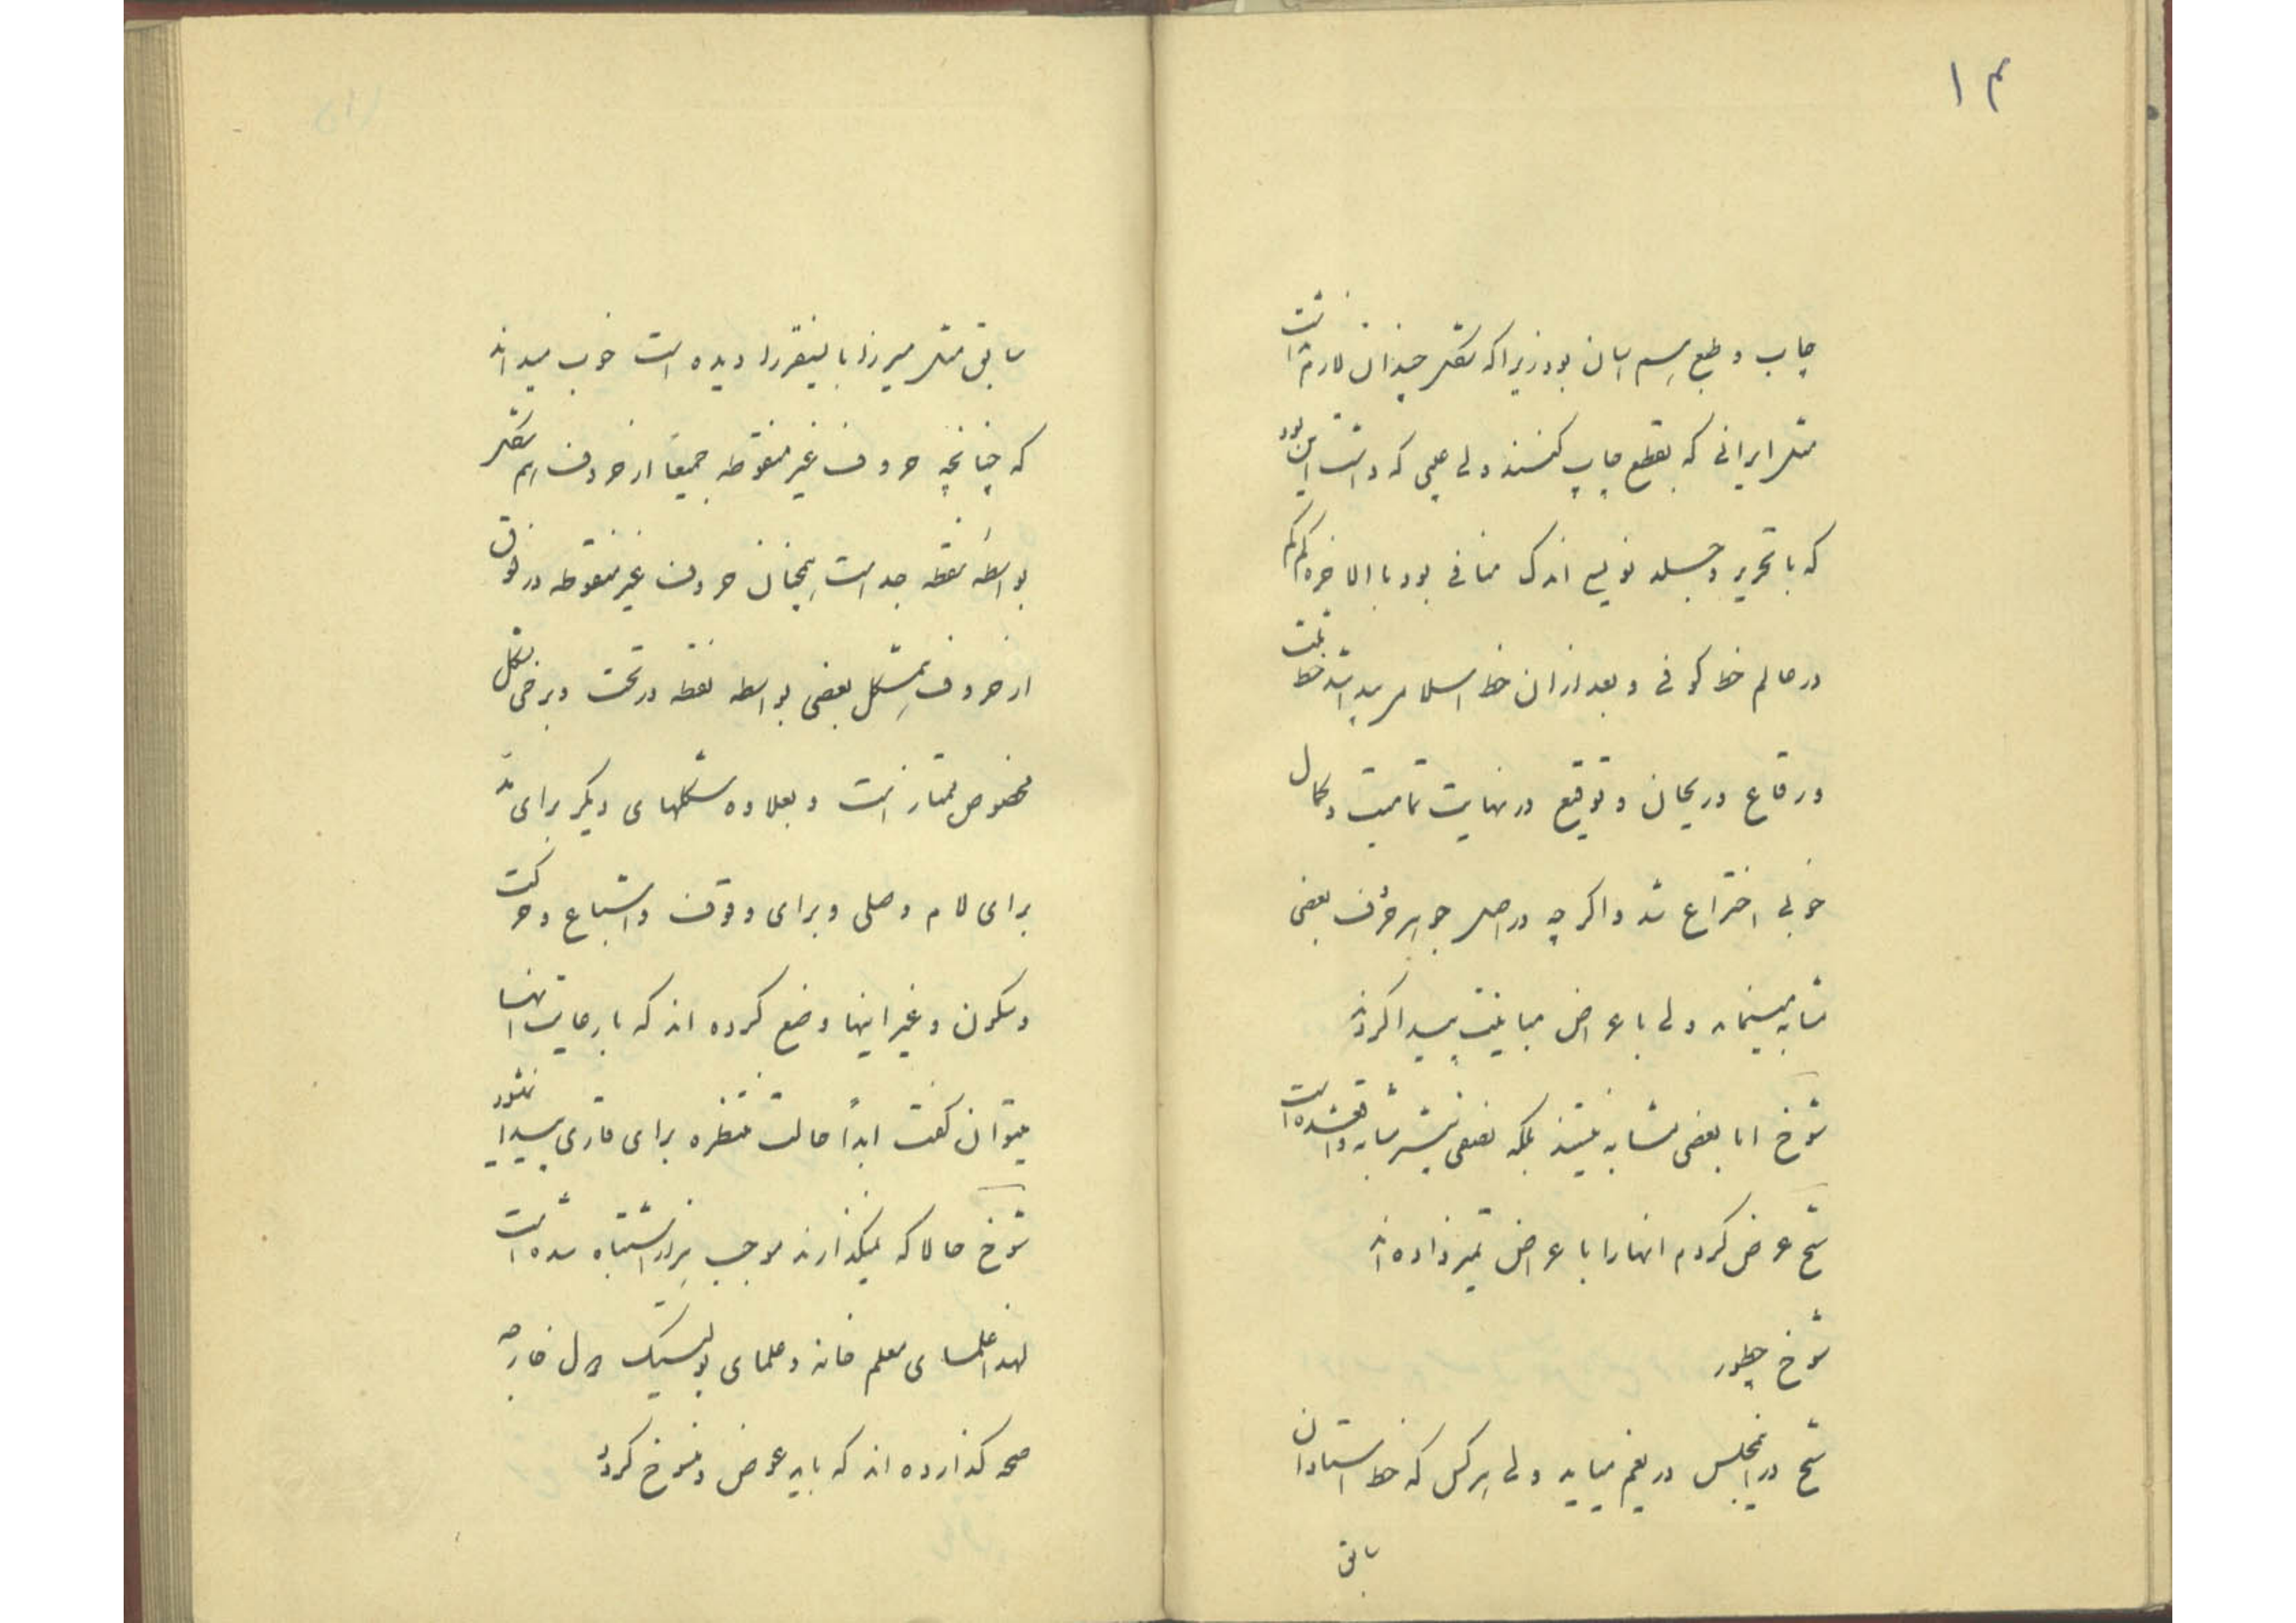 ۱۴
چاپ و طبع هم اسان بود زیرا که بقدر چندان لازم نداشت
مثل ایرانی که بقطع چاپ کنند ولی عیبی که داشت این بود
که با تحریر و جلد نویسی اندک منافی بود بالاخره کم کم
در عالم خط کوفی و بعد از ان خط اسلام پیدا شد خط ثلث
و رقاع و ریحان و توقیع در نهایت تمامیت و کمال
خوبی اختراع شد و اگر چه در اصل جوهر حرف بعضی
مشابه مینماید ولی با عراض مباینت پیدا کردند
شوخ اما بعضی مشابه نیستند بلکه نصفی بیشتر مشابه واقع شده است
شیخ عرض کردم انها را با عراض تمیز داده اند
شوخ چطور
شیخ در انمجلس در بغم میاید ولی هر کس که خط استادان
سابق
سابق مثل میرزا بایسنقر را دیده است خوب میداند
که چنانچه حروف غیر منقوطه جمیعا از حروف هم شکل
بواسطه نقطه جداست همچنان حروف غیر منقوطه در فوق
از حروف همشکل بعضی بواسطه نقطه در تحت و برخی بشکل
مخصوص ممتاز است و بعلاوه شکلهای دیگر برای مد
برای لام وصلی و برای وقوف و اشباع و حرکت
و سکون و غیر اینها وضع کرده اند که با رعایت انها
میتوان گفت ابداً حالت منتظره برای قاری پیدا نشود
شوخ حالا که نمیگذارند موجب هزار اشتباه شده است
لهذا علمای معلم خانه و علمای پولیتیک دول خارجه
صحه گذارده اند که باید عوض و منسوخ کرد